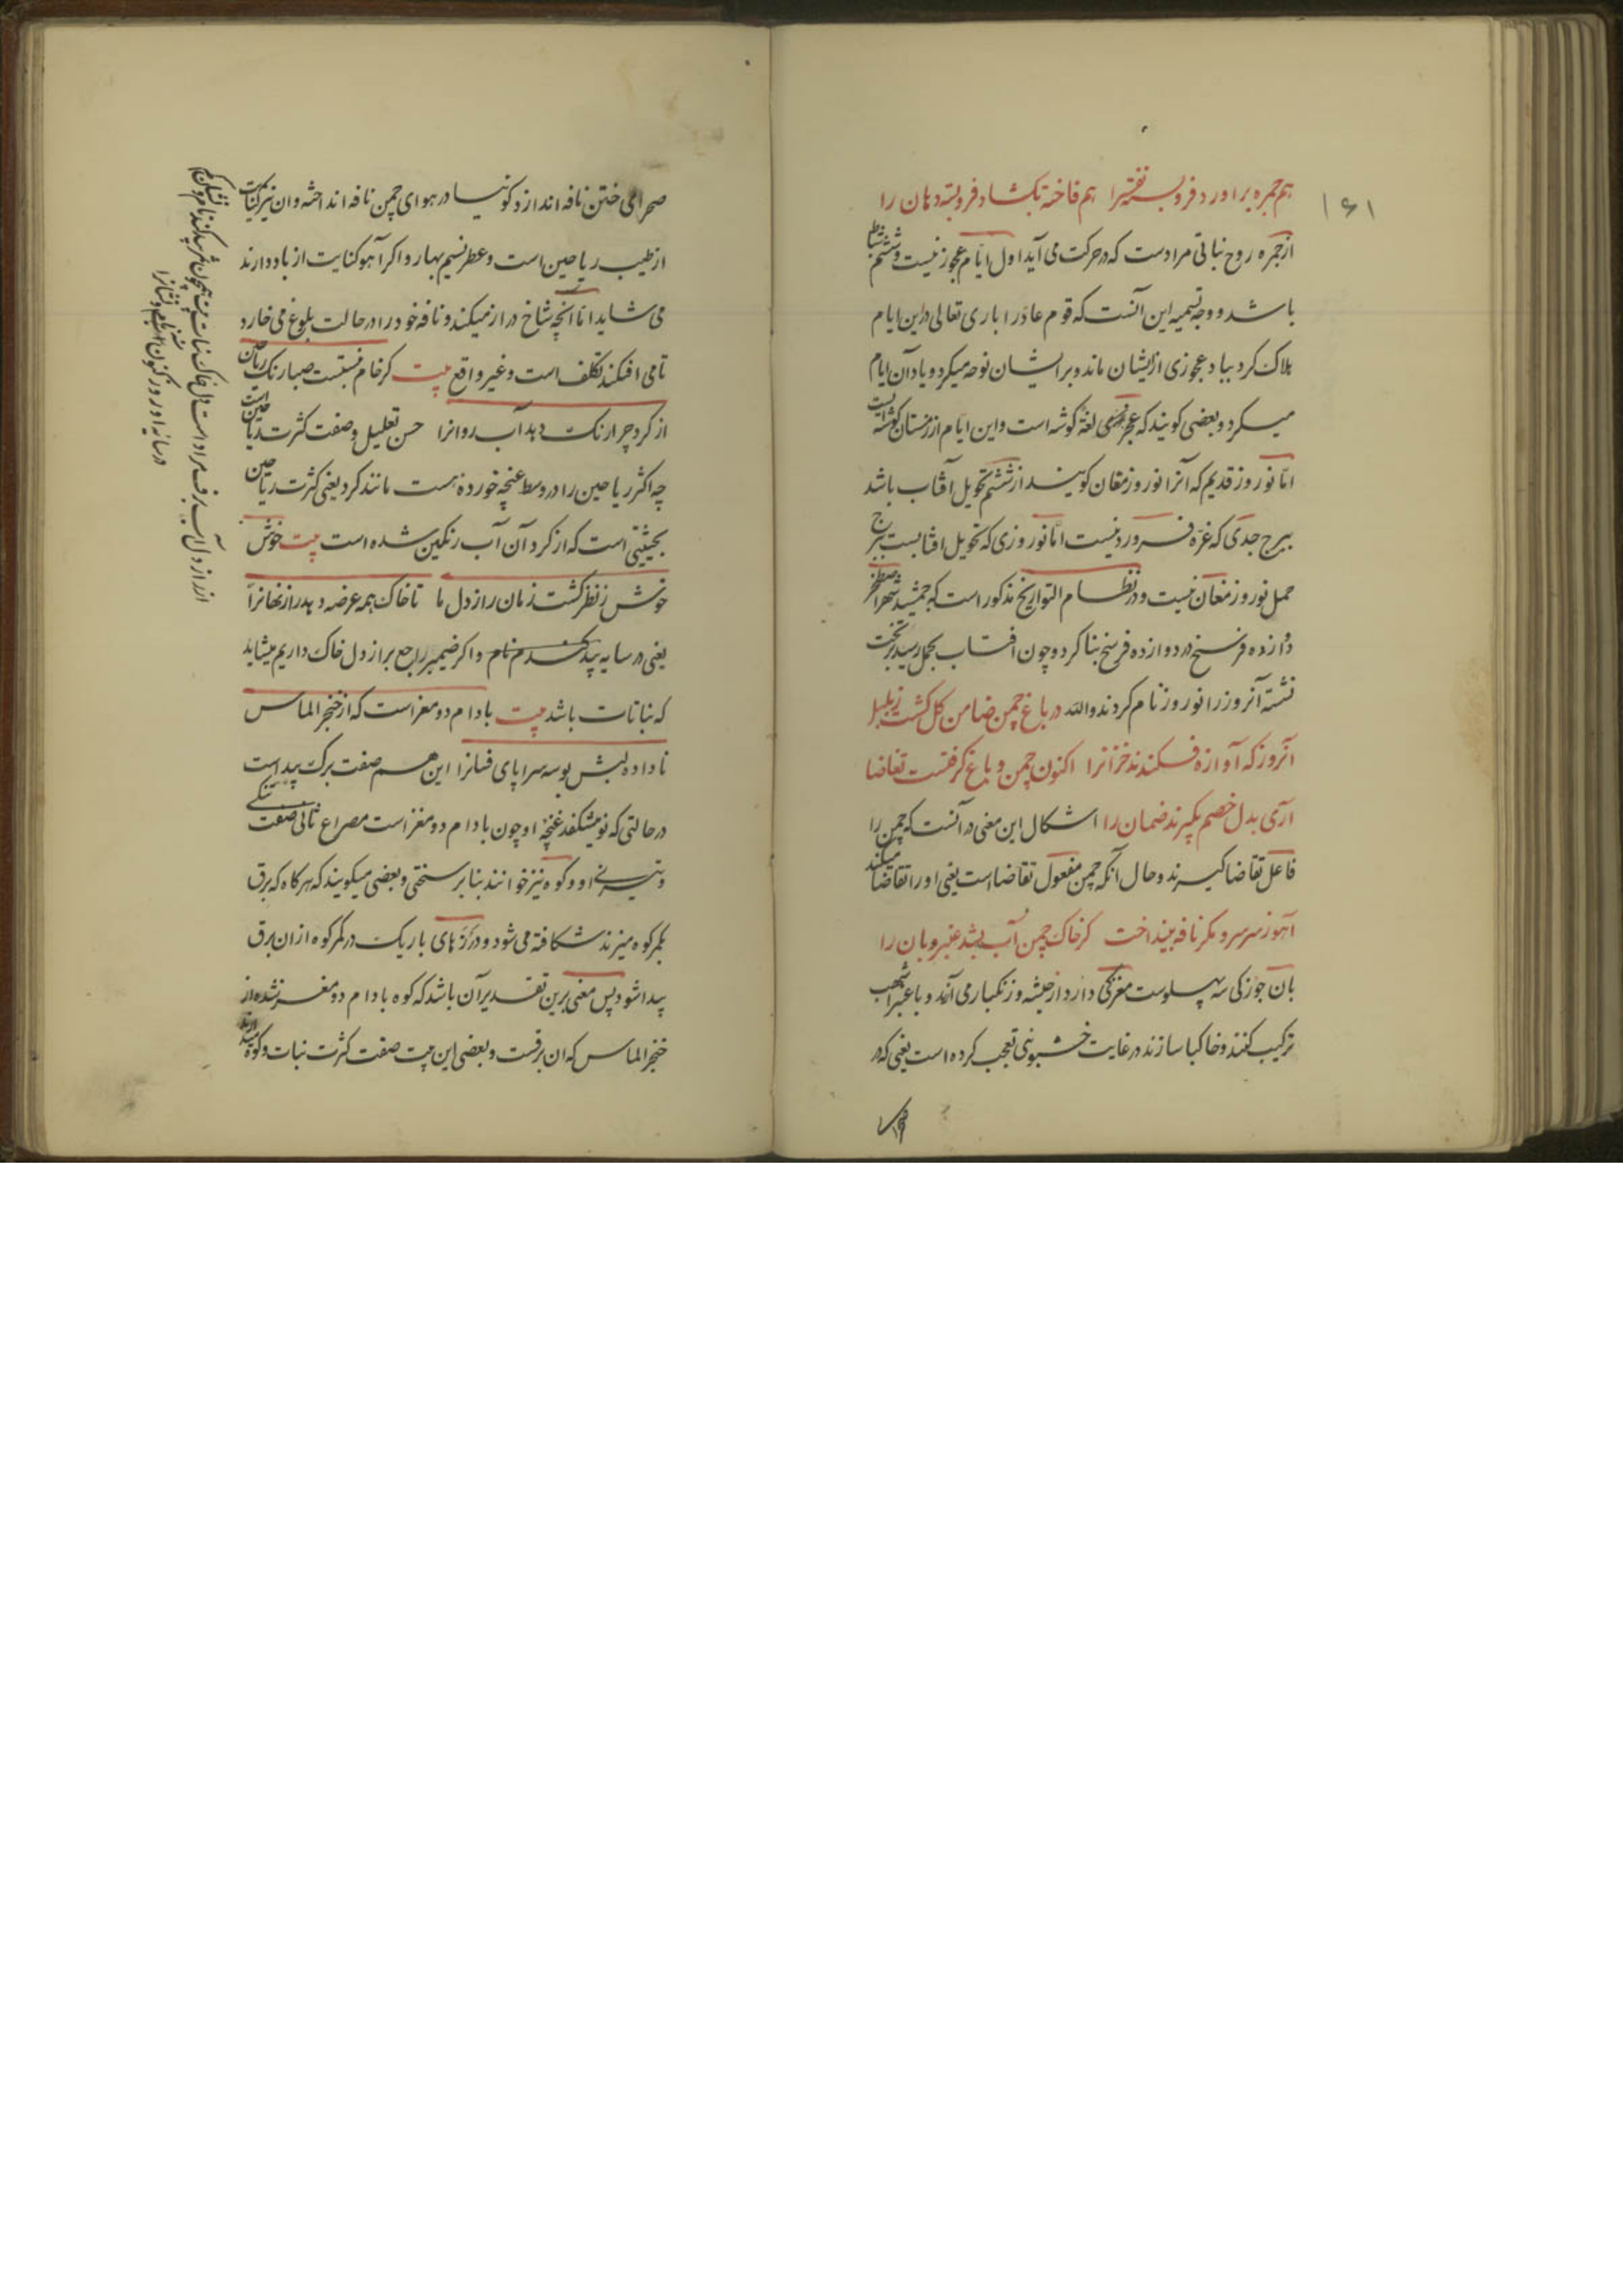 ۱۶۱
هم جمره براورد فروبسته نفس را هم فاخته بکشاد فروبسته دهان را
از جمره روح نباتی مرادست که در حرکت می آید اول ایام عجوز نیست و ششم شباط
باشد و وجه تسمیه این آنست که قوم عاد را باری تعالی در این ایام
هلاک کرد بباد و عجوزی از ایشان ماند و بر ایشان نوحه میکرد و یاد آن ایام
میکرد و بعضی کویند که عجز در لغة کوشه است و این ایام از زمستان کوشه ایست
اما نوروز قدیم که آنرا نوروز مغان کویند از ششم تحویل آفتاب باشد
ببرج جدی که غره فروردنیست اما نوروزی که تحویل افتابست ببرج
حمل نوروز مغان نیست و در نظام التواریخ مذکور است که جمشید شهر اصطخر
دوازده فرسخ در دوازده فرسخ بنا کرد و چون افتاب بحمل رسید بر تخت
نشته آنروز را نوروز نام کردند والله در باغ چمن ضامن کل کشت ز بلبل
آنروز که آوازه فکندند خزانرا اکنون چمن و باغ کرفتست تقاضا
آری بدل خصم بکیرند ضمان را اشکال این معنی در آنست که چمن را
فاعل تقاضا کیرند و حال آنکه چمن مفعول تقاضا است یعنی او را تقاضا میکند
آهو ز سر سرو مکر نافه بینداخت کز خاک چمن آب بشد عنبر و بان را
بان جوزکی سه پهلوست مغزکی دارد از حبشه و زنکبار می آرند و با عنبر اشهب
ترکیب کنند و خاکها سازند در غایت خشبوئی تعجب کرده است یعنی که در
صحرای ختن نافه اندازد کوئیا در هوای چمن نافه انداخته و ان نیز کنایت
از طیب ریاحین است و عطر نسیم بهار و اکر آهو کنایت از باد دارند
می شاید اما انچه شاخ دراز میکند و نافه خود را در حالت بلوغ می خارد
تا می افکند تکلف است و غیر واقع بیت کر خام نبستست صبا رنک ریاحین
از کرد چرا رنک دهد آب روانرا حسن تعلیل و صفت کثرت ریاحین است
چه اکثر ریاحین را در وسط غنچه خورده هست مانند کرد یعنی کثرت ریاحین
بحیثیتی است که از کرد آن آب رنکین شده است بیت خوش
خوش ز نظر کشت نهان راز دل ما تا خاک همه عرضه دهد راز نهانرا
یعنی در سایه بید کندم نام و اکر ضمیر راجع براز دل خاک داریم میشاید
که نباتات باشد بیت بادام دو مغز است که از خنجر الماس
ناداده لبش بوسه سراپای فسانرا این هم صفت برک بید است
در حالتی که نو میشکفد غنچه او چون بادام دو مغز است مصراع ثانی صفت
و تیزی او و کوه نیز خوانند بنا بر سختی و بعضی میکویند که هر کاه که برق
بکمر کوه میزند شکافته می شود و درزهای باریک در کمر کوه از ان برق
پیدا شود پس معنی برین تقدیر آن باشد که کوه بادام دو مغز شده از
خنجر الماس که ان برقست و بعضی این بیت صفت کثرت نبات و کوه